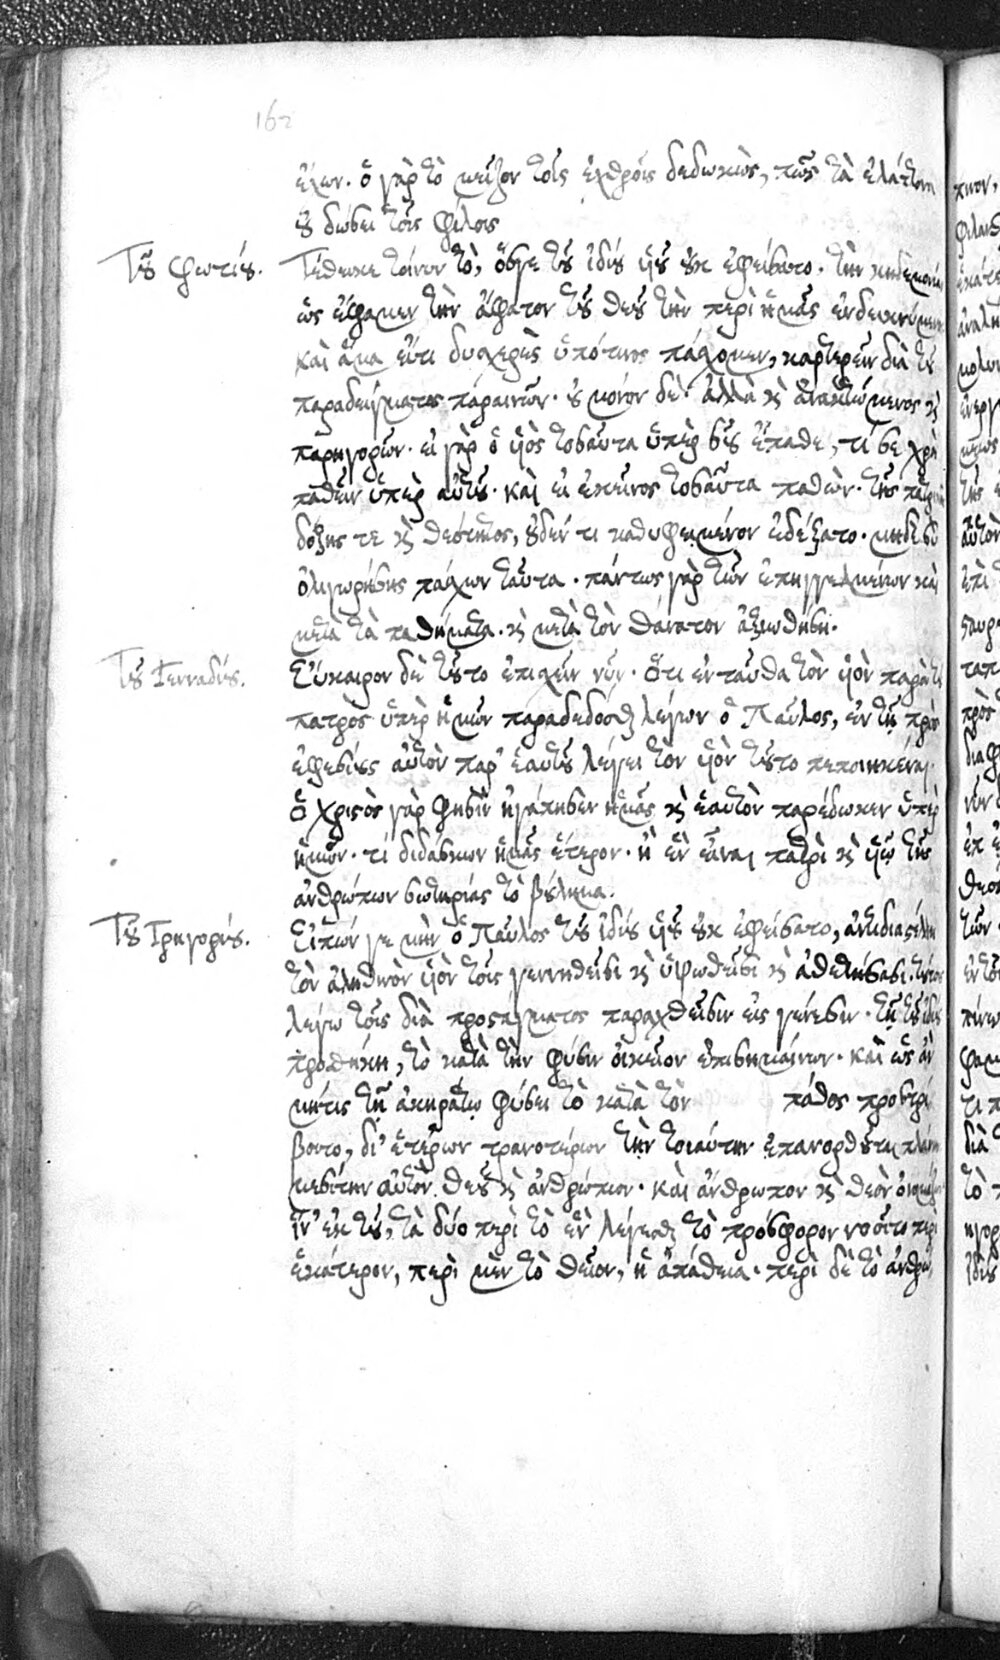 162
ἔχων. ὁ γὰρ τὸ μεῖζον τοῖς ἐχθροῖς δεδωκὼς, πῶς τὰ ἐλάττονα
οὐ δώσει τοῖς φίλοις
Τοῦ φωτίου. Τέθεικε τοίνυν τὸ, ὅσγε τοῦ ἰδίου υἱοῦ οὐκ ἐφείσατο. τὴν κηδεμονίαν
ὡς ἔφαμεν τὴν ἄφατον τοῦ θεοῦ τὴν περὶ ἡμᾶς ἐνδεικνύμενος
καὶ ἅμα εἴτι δυσχερὲς ὑπότινος πάσχομεν, καρτερεῖν διὰ τοῦ
παραδείγματος παραινῶν. οὐ μόνον δὲ. ἀλλὰ καὶ ἀνακτώμενος καὶ
παρηγορῶν. εἰ γὰρ ὁ υἱὸς τοσαῦτα ὑπὲρ σοῦ ἔπαθε, τί σε χρὴ
παθεῖν ὑπὲρ αὐτοῦ. καὶ εἰ ἐκεῖνος τοσαῦτα παθὼν. τῆς πατρικῆς
δόξης τε καὶ θεότητος, οὐδέν τι καθυφειμένον ἐδέξατο. μηδὲ σὺ
ὀλιγωρήσῃς πάσχων ταῦτα. πάντως γὰρ τῶν ἐπηγγελμένων καὶ
μετὰ τὰ παθήματα. καὶ μετὰ τὸν θάνατον ἀξιωθήσῃ.
Τοῦ Γενναδίου. Εὔκαιρον δὲ τοῦτο ἐπισχεῖν νῦν. ὅτι ἐνταῦθα τὸν υἱὸν παρὰ τοῦ
πατρὸς ὑπὲρ ἡμῶν παραδεδόσθαι λέγων ὁ Παῦλος, ἐν τῇ πρὸς
ἐφεσίους αὐτὸν παρ' ἑαυτοῦ λέγει τὸν υἱὸν τοῦτο πεποιηκέναι.
ὁ χριστὸς γὰρ φησὶν ἠγάπησεν ἡμᾶς καὶ ἑαυτὸν παρέδωκεν ὑπὲρ
ἡμῶν. τί διδάσκων ἡμᾶς ἕτερον. ἢ ἓν εἶναι πατρὶ καὶ υἱῷ τῆς
ἀνθρώπων σωτηρίας τὸ βούλημα.
Τοῦ Γρηγορίου. Εἰπών γε μὴν ὁ Παῦλος τοῦ ἰδίου υἱοῦ οὐκ ἐφείσατο, ἀντιδιαστέλλει
τὸν ἀληθινὸν υἱὸν τοῖς γεννηθεῖσι καὶ ὑψωθεῖσι καὶ ἀθετήσασι. τούτους
λέγω τοῖς διὰ προστάγματος παραχθεῖσιν εἰς γένεσιν. τῇ τοῦ ἰδίου
προσθήκῃ, τὸ κατὰ τὴν φύσιν οἰκεῖον ἐπισημαίνων. καὶ ὡς ἂν
μήτις τῇ ἀκηράτῳ φύσει τὸ κατὰ τὸν πάθος προστρί
βοιτο, δι' ἑτέρων τρανοτέρων τὴν τοιαύτην ἐπανορθοῦται πλάνην
μεσίτην αὐτὸν θεοῦ καὶ ἀνθρώπων. καὶ ἄνθρωπον καὶ θεὸν ὀνομάζων
ἵν' ἐκ τοῦ, τὰ δύο περὶ τὸ ἓν λέγεσθαι τὸ πρόσφορον νοοῖτο περὶ
ἑκάτερον, περὶ μὲν τὸ θεῖον, ἡ ἀπάθεια. περὶ δὲ τὸ ἀνθρώ